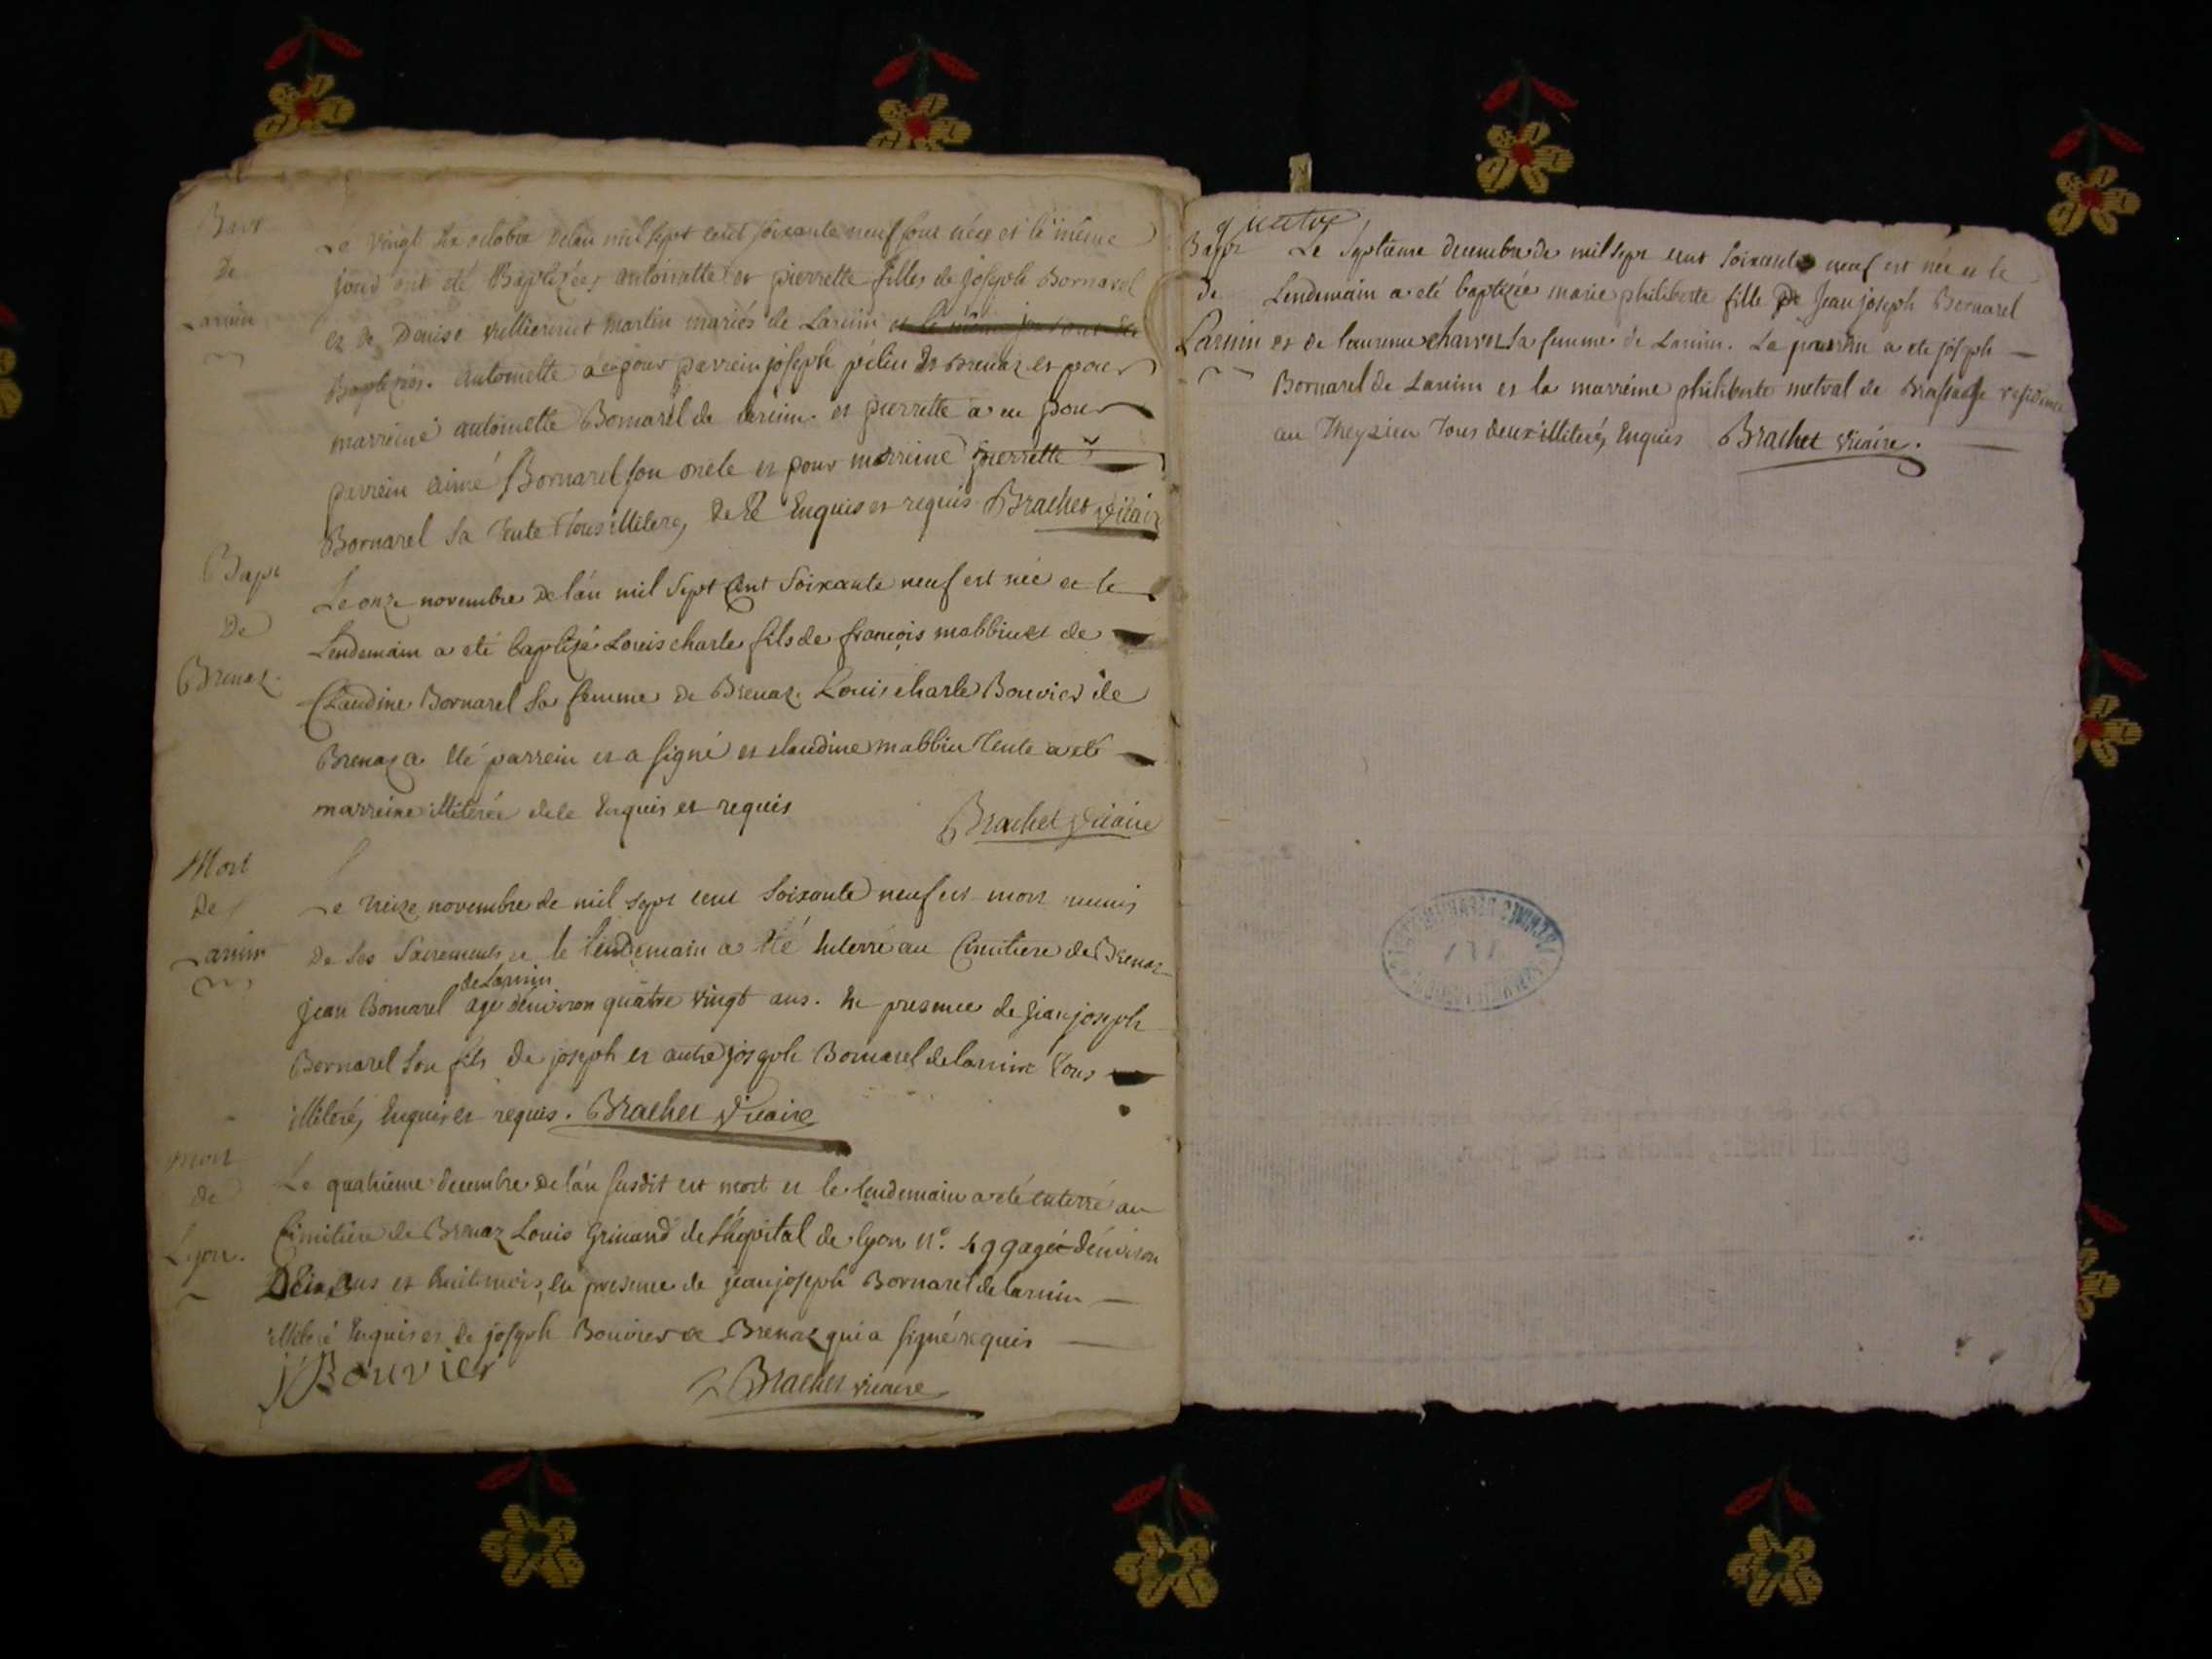 Bapt
De
Larnin
Le vingt six octobre delan mil sept cent soixante neuf sont nées et le même
jour ont été Baptizées antoinette et pierrette filles de joseph Bornarel
et de Denise martin mariés de Larnin et le même jour ont été
Baptizées. antoinette a eu pour parrein joseph pélin de Brenaz et pour
marreine antoinette Bornarel de larnin. et pierrette a eu pour
parrein aimé Bornarel son oncle et pour marreine pierrette
Bornarel sa tente tous illiteré, de ce Enquis et requis Brachet vicaire
Bapt
De
Brenaz.
Le onze novembre de lán mil sept Cent Soixante neuf est née et le
Lendemain a eté baptizé Louis charle fils de françois mabbiu et de
Claudine Bornarel sa femme de Brenaz. Louis charle Bouvier de
Brenaz a été parrein et a signé et claudine mabbiu tente a eté
marreine illiterée de le Enquis et requis
Brachet vicaire
Mort
De
Larnin
Le treize novembre de mil sept cent Soixante neuf est mort munis
De ses Sacrements et le lendemain a été Enterré au Cimitiere de Brenaz
de Larnin
Jean Bornarel agé dénviron quatre vingt ans. En presence de jean joseph
Bornarel son fils de joseph et autre joseph Bornarel de larnin tous
illiteré, Enquis et requis. Brachet vicaire
mort
de
Lyon.
Le quatrieme decembre de lán susdit est mort et le lendemain a eté enterré au
Cimitiere de Brenaz Louis Grinand de l'hopital de lyon n.º 499 agée dénviron
Deix ans et huit mois, en presence de jean joseph Bornarel de larnin
illiteré Enquis et de joseph Bouvier de Brenaz qui a signé requis
j Bouvier
Brachet vicaire
quatre
Bapt
de
Larnin
Le Septieme decembre de mil sept cent soixante neuf est née et le
Lendemain a eté baptizée marie philiberte fille de Jean joseph Bernarel
et de laurence charvet sa femme de Larnin. Le parrein a ete joseph
Bornarel de Larnin et la marreine philiberte metral de
au Theysieu tous deux illiteré, Enquis Brachet vicaire.